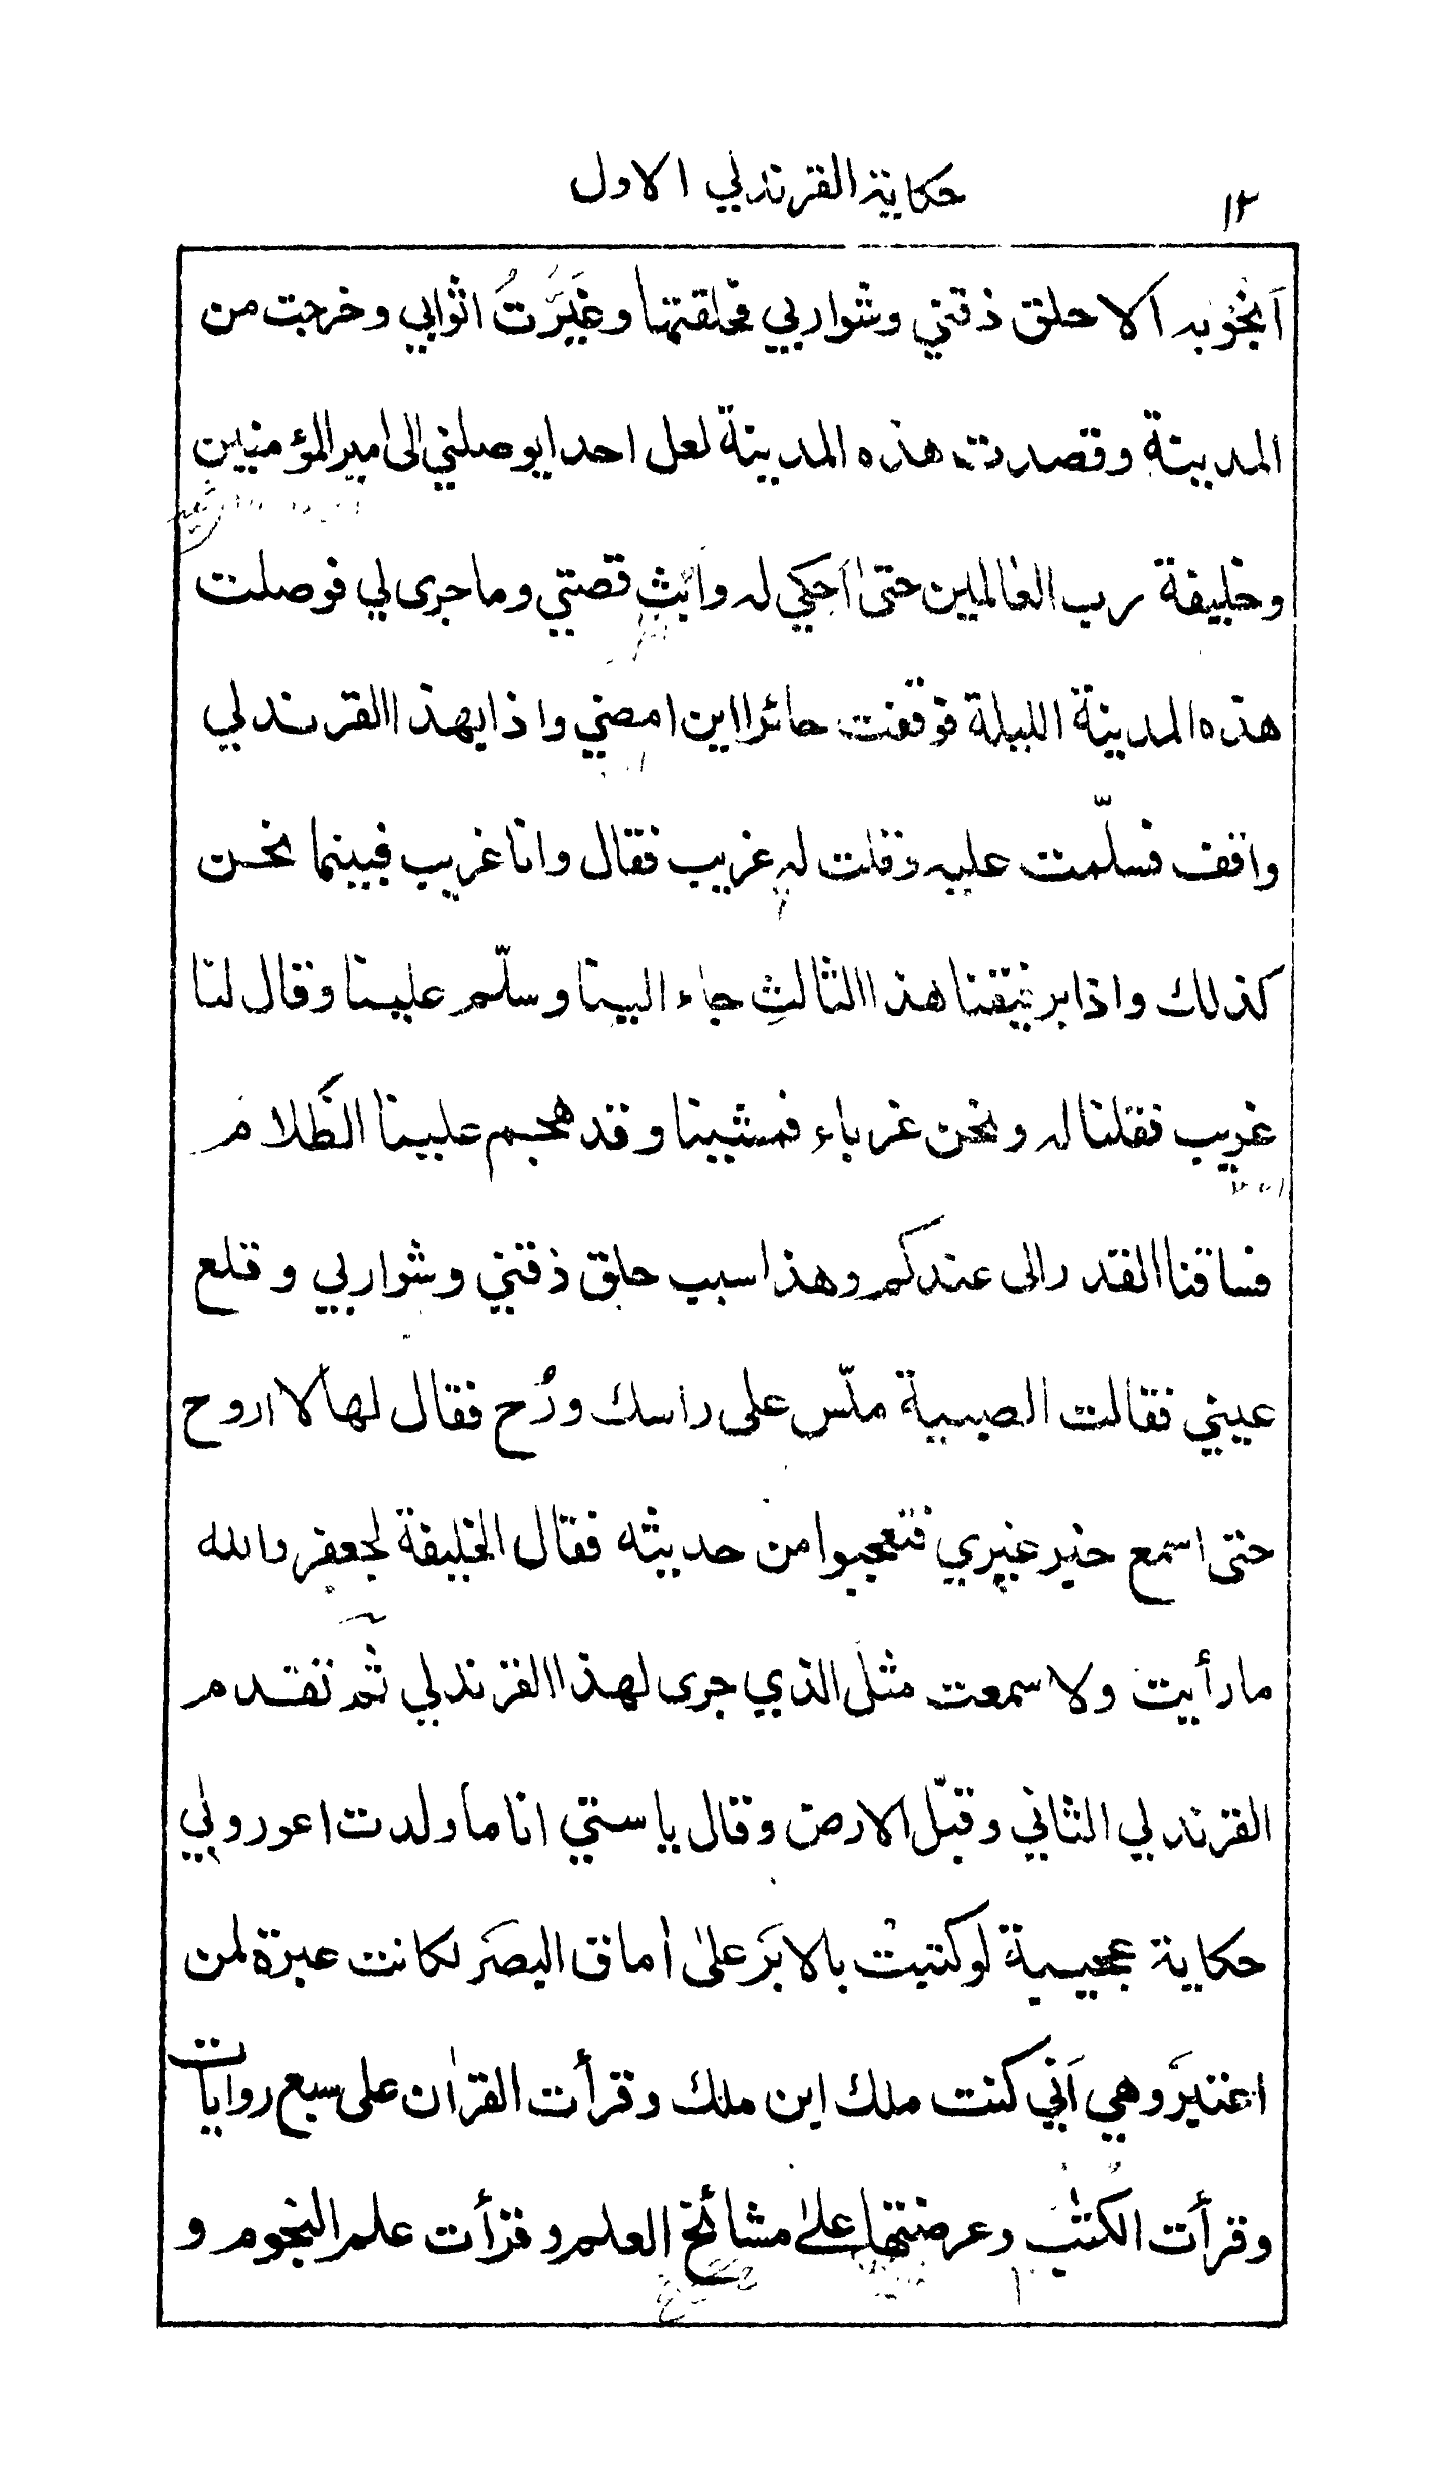 ١٢
حكاية القرندلي الاول
اَنجُوْ به اَلا حلق ذقني وشواربي فحلقتها وغَيَّرتُ اثوابي وخرجت من
المدينة وقصدت هذه المدينة لعل احدا يوصلني الى امير المؤمنين
وخليفة رب العالمين حتى اَحكي له واَبث قصتي وما جرى لي فوصلت
هذه المدينة الليلة فوقفت حائرا اين امضي واذا بهذا القرندلي
واقف فسلّمت عليه وقلت له غريب فقال وانا غريب فبينما نحن
كذلك واذا برفيقنا هذا الثالث جاء الينا وسلّم علينا وقال لنا
غريب فقلنا له ونحن غرباء فمشينا وقد هجم علينا الظَّلام
فساقنا القدر الى عندكم وهذا سبب حلق ذقني وشواربي وقلع
عيني فقالت الصبية ملّس على راسك ورُح فقال لها لا اروح
حتى اسمع خبر غيري فتعجبوا من حديثه فقال الخليفة لجعفر والله
ما رأيت ولا سمعت مثل الذي جرى لهذا القرندلي ثم تقدم
القرندلي الثاني وقبّل الارض وقال يا ستي انا ما ولدت اعور ولي
حكاية عجيبة لو كتبت بالابَر على اماق البصَر لكانت عبرة لمن
اعتبرَ وهي اَني كنت ملك ابن ملك وقرأت القراٰن على سبع روايات
وقرأت الكُتبْ وعرضتها على مشائخ العلم وقرأت علم النجوم و